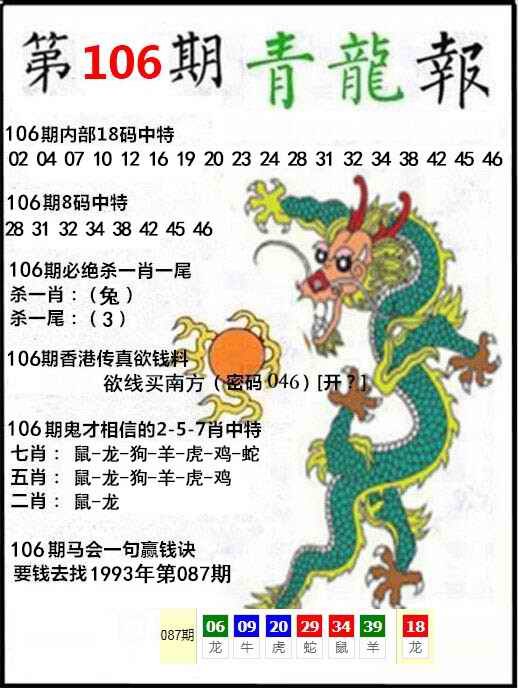 第106期 青龍報
106期内部18码中特
02 04 07 10 12 16 19 20 23 24 28 31 32 34 38 42 45 46
106期8码中特
28 31 32 34 38 42 45 46
106期必绝杀一肖一尾
杀一肖：（兔）
杀一尾：（3）
106期香港传真欲钱料
欲线买南方（密码046）[开？]
106期鬼才相信的2-5-7肖中特
七肖：鼠-龙-狗-羊-虎-鸡-蛇
五肖：鼠-龙-狗-羊-虎-鸡
二肖：鼠-龙
106期马会一句赢钱诀
要钱去找1993年第087期
087期 06 09 20 29 34 39 18
龙 牛 虎 蛇 鼠 羊 龙